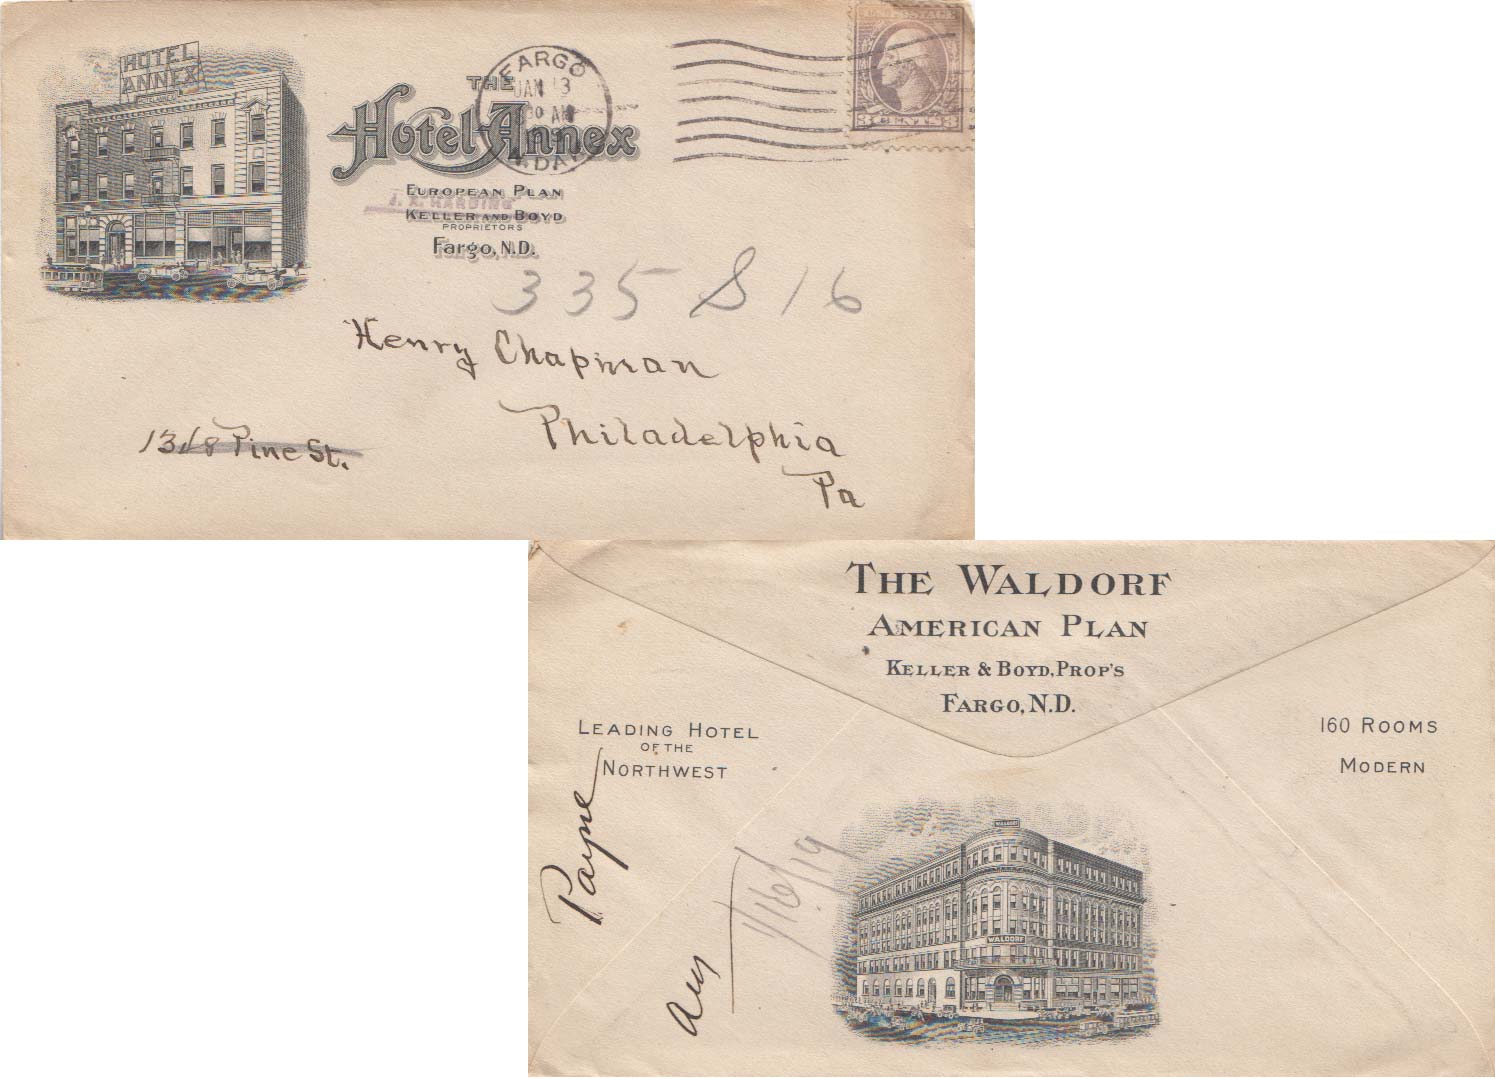 HOTEL
ANNEX
THE
Hotel Annex
EUROPEAN PLAN
J. A. HARDING
KELLER AND BOYD
PROPRIETORS
Fargo, N.D.
FARGO
JAN 13
AM
N.DAK.
POSTAGE
3 CENTS 3
335 S 16
Henry Chapman
Philadelphia
Pa
Pine St.
THE WALDORF
AMERICAN PLAN
KELLER & BOYD, PROP'S
FARGO, N.D.
LEADING HOTEL
OF THE
NORTHWEST
160 ROOMS
MODERN
WALDORF
WALDORF
Payne
1/16/19